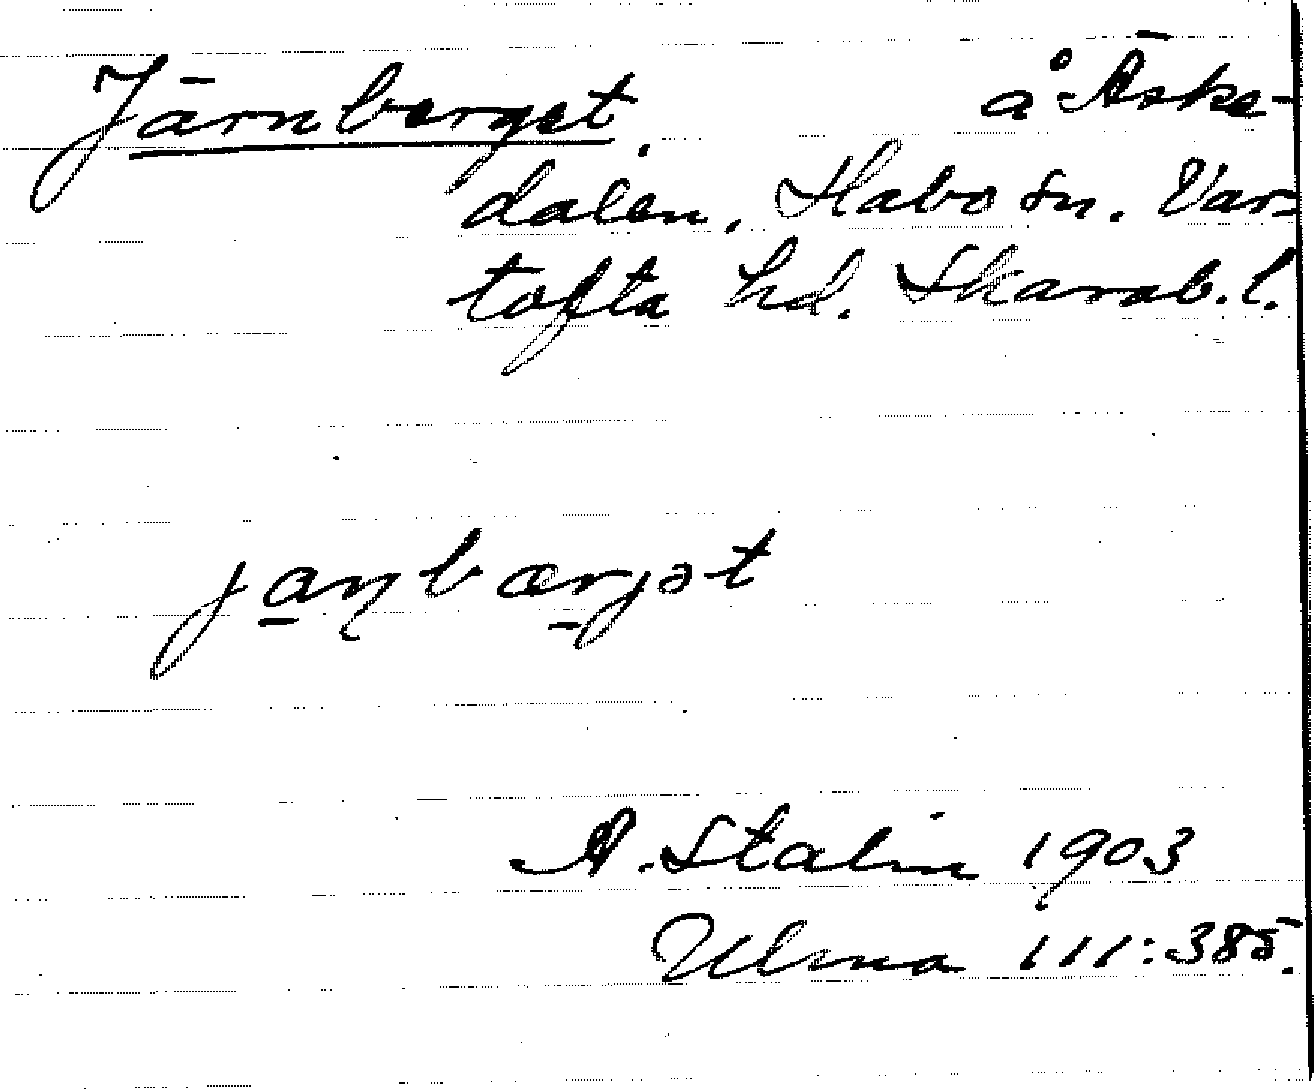 Järnberget. å Äske-
dalen, Habo sn. Var-
tofta hd. Skarab. l.
ja̲ɳbæ̲rjət
A. Stalin 1903
Ulma 111:385.